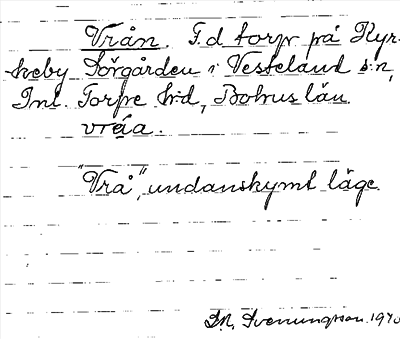 Vrån. F.d torp på Kyr-
keby Sörgården i Vesteland s:n,
Inl. Torpe h:d, Bohus län.
vråa.
"Vrå", undanskymt läge.
Svenungsson. 1940